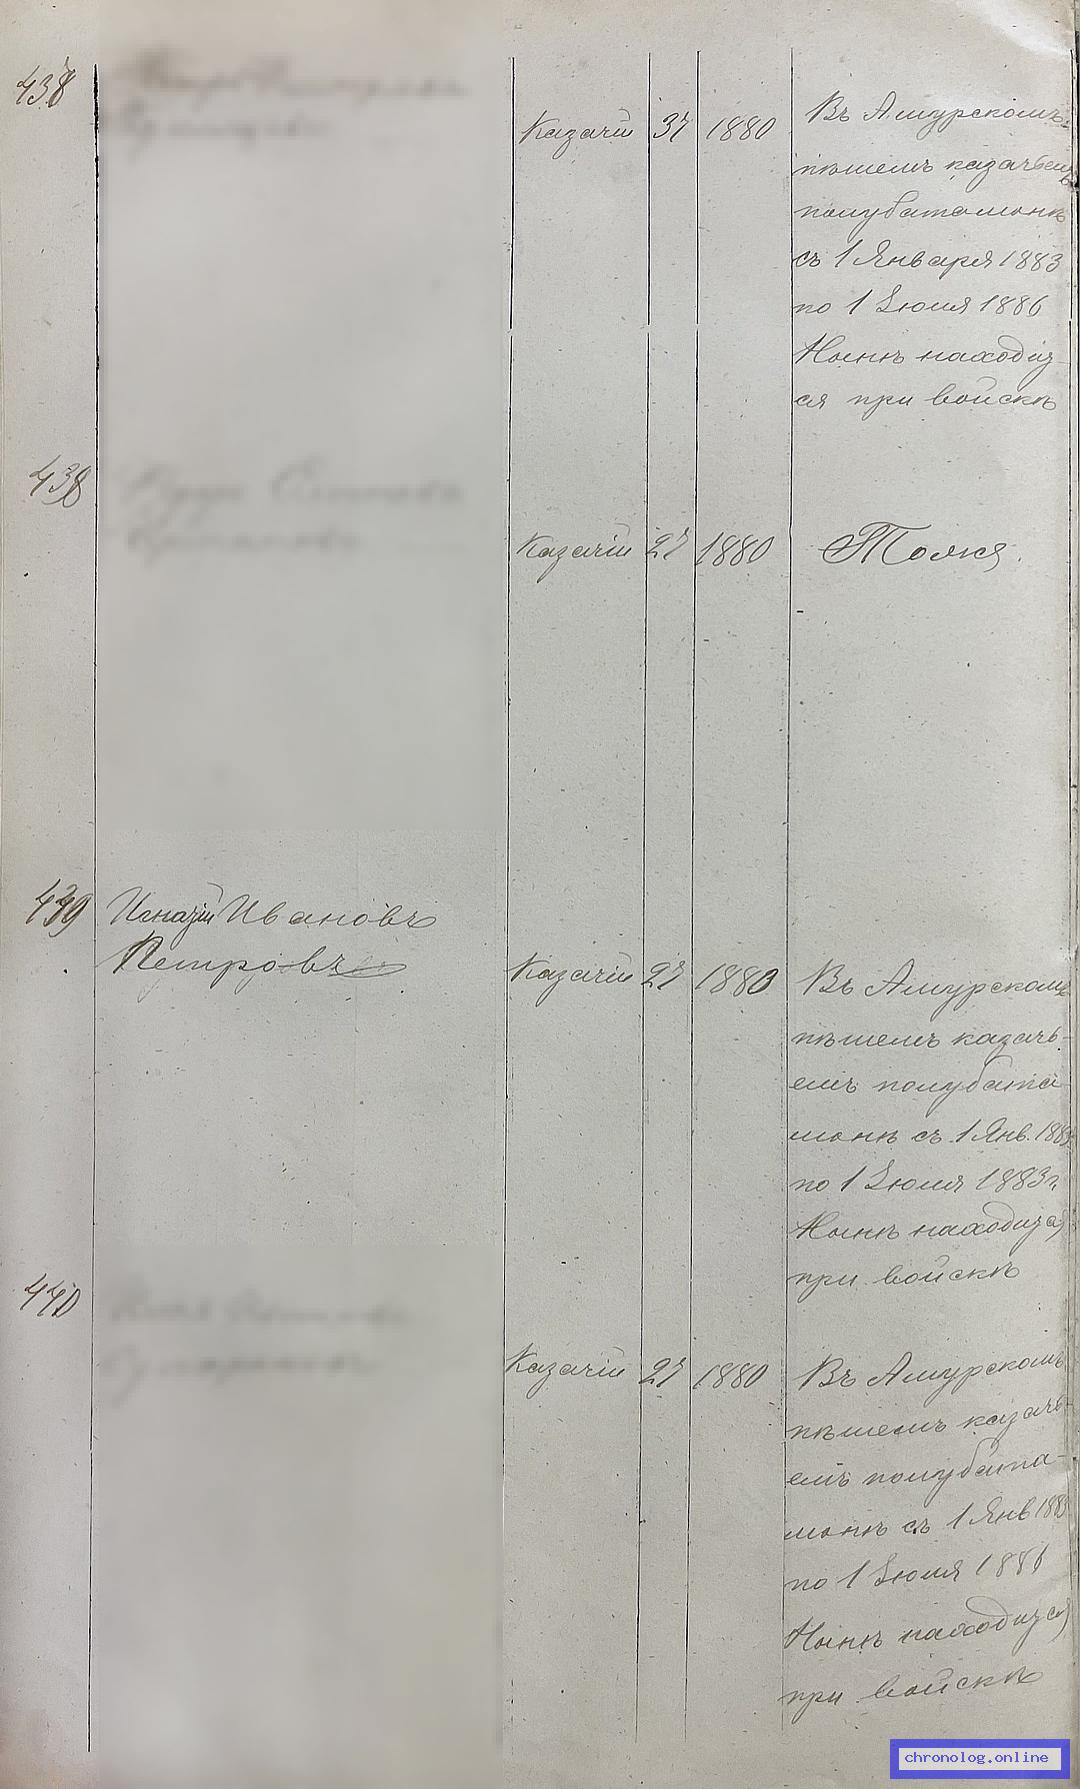 438
Казачiй 37 1880 Въ Амурскомъ
пѣшемъ казачьемъ
полубаталионѣ
съ 1 Января 1883
по 1 Iюля 1886
Нынѣ находит-
ся при войскѣ
438
Казачiй 27 1880 Тоже
439 Игнатiй Ивановъ
Петровъ
Казачiй 27 1880 Въ Амурскомъ
пѣшемъ казачь-
емъ полубата
лионѣ съ 1 Янв. 1883
по 1 Iюля 1883 г.
Нынѣ находится
при войскѣ
440
Казачiй 27 1880 Въ Амурскомъ
пѣшемъ казачь-
емъ полубата-
лионѣ съ 1 Янв 1883
по 1 Iюля 1886
Нынѣ находится
при войскѣ
chronolog.online